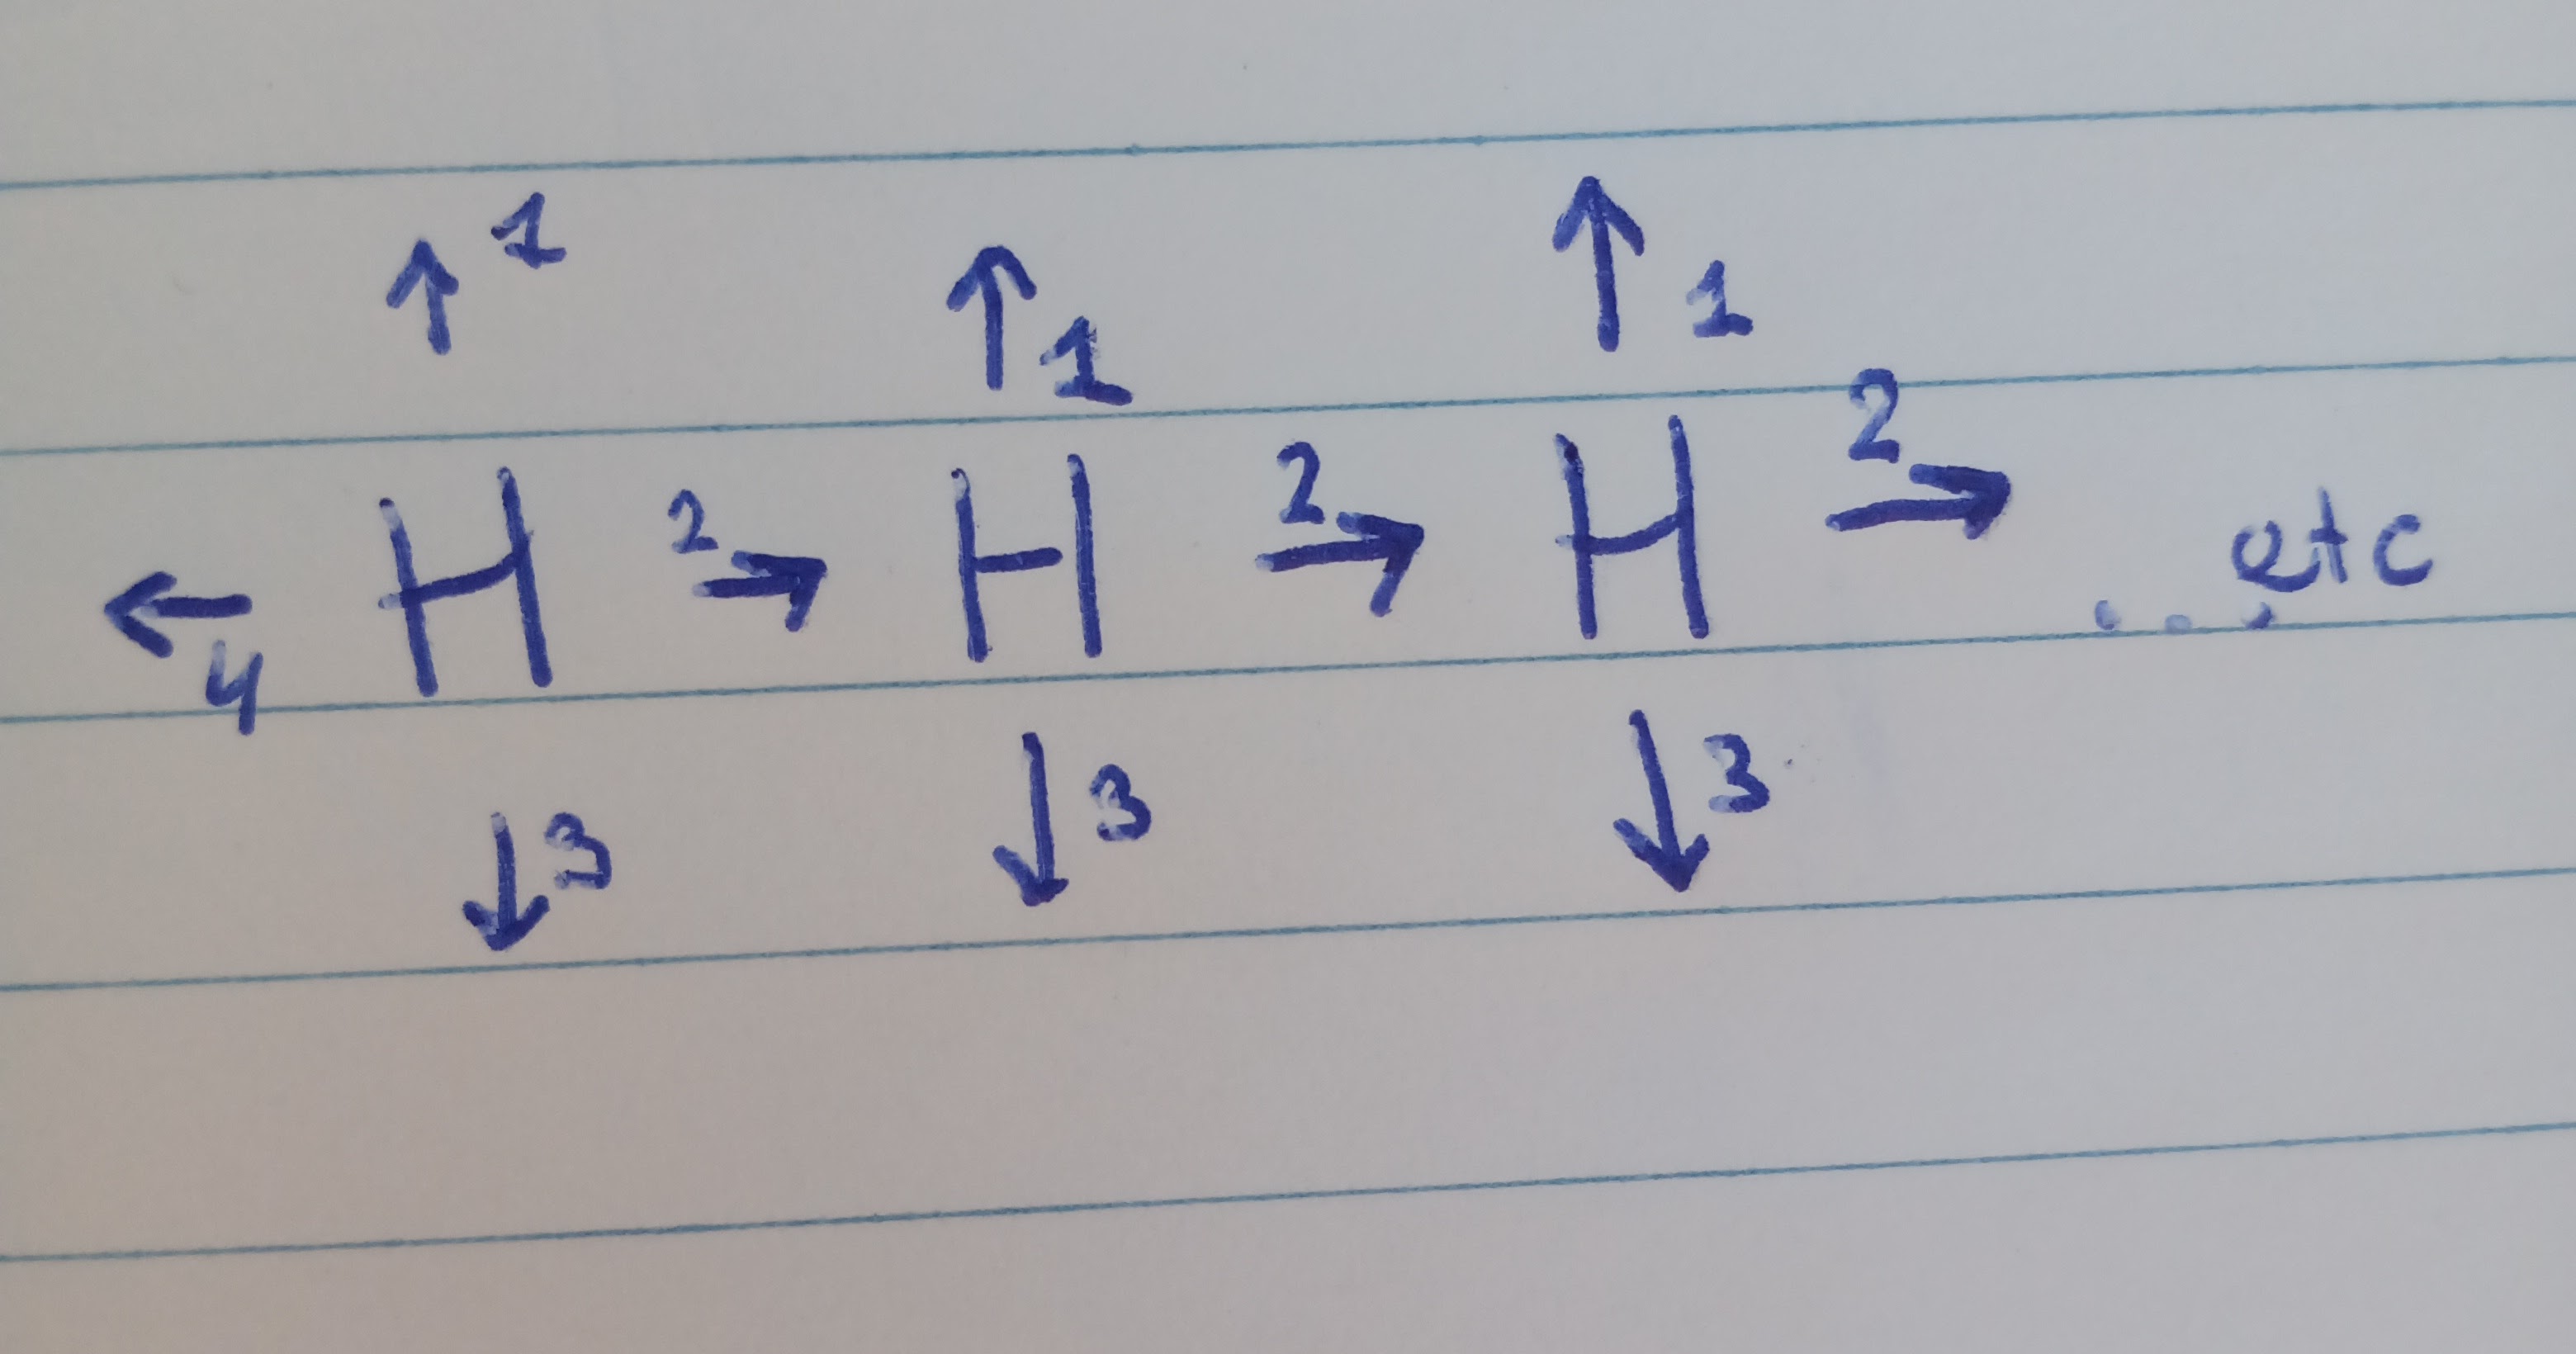 ↑ 1 ↑ 1 ↑ 1
← 4 H 2 → H 2 → H 2 → ... etc
↓ 3 ↓ 3 ↓ 3